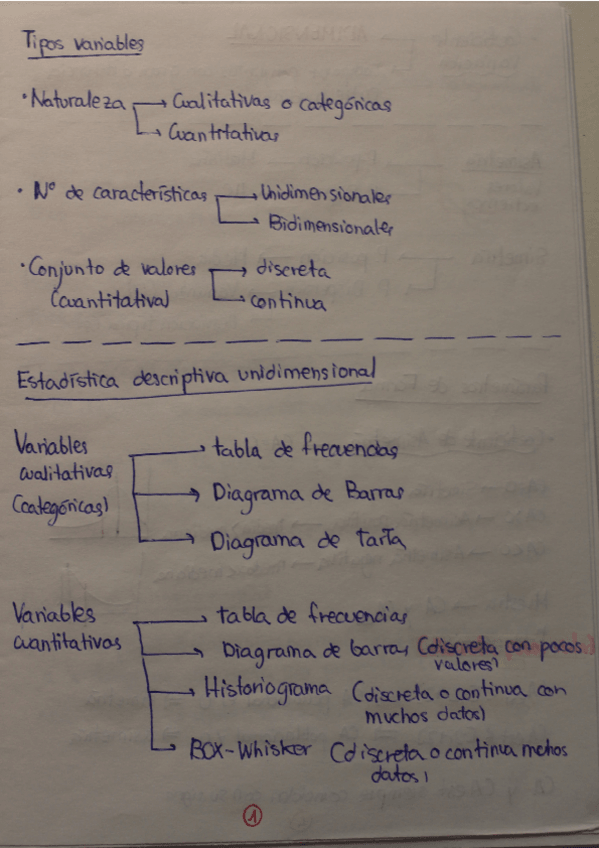 Tipos variables
· Naturaleza → Cualitativas o categóricas
→ Cuantitativas
· Nº de características → Unidimensionales
→ Bidimensionales
· Conjunto de valores → discreta
(cuantitativa) → continua
Estadística descriptiva unidimensional
Variables → tabla de frecuencias
cualitativas
→ Diagrama de Barras
(categóricas)
→ Diagrama de tarta
Variables → tabla de frecuencias
cuantitativas
→ Diagrama de barras (discreta con pocos
valores)
→ Historiograma (discreta o continua con
muchos datos)
→ BOX-Whisker (discreta o continua
datos)
1